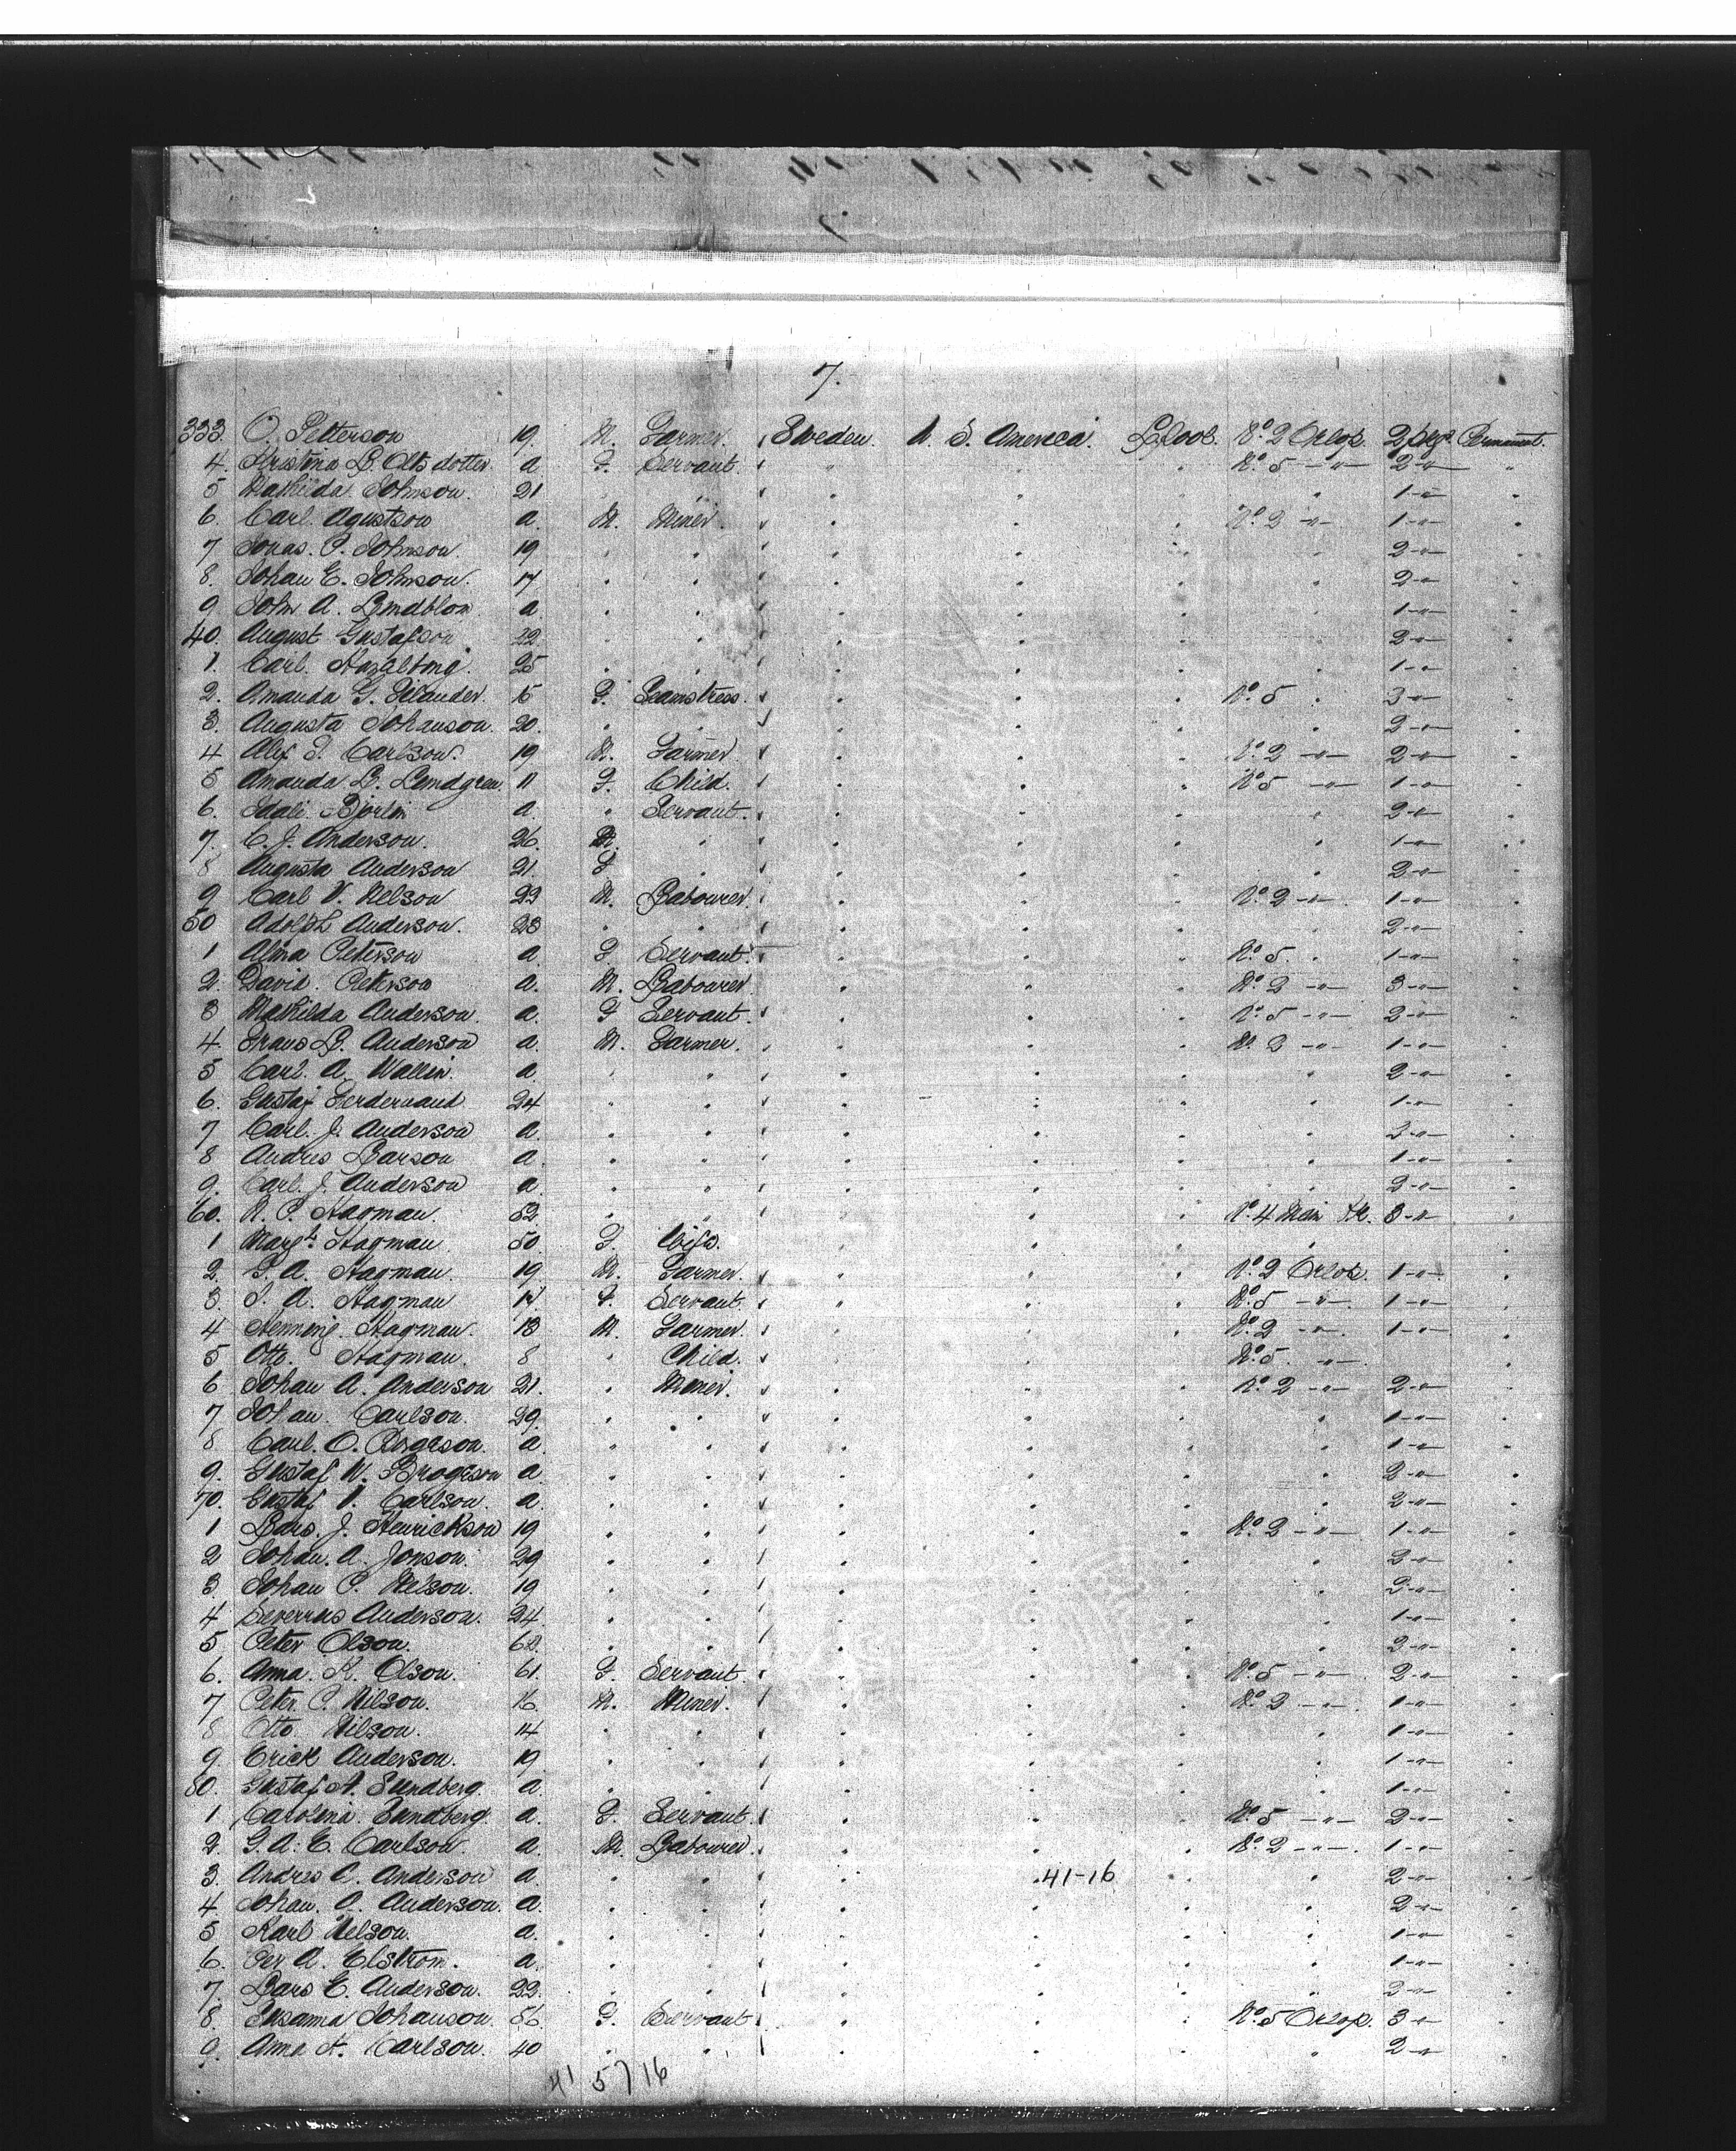 7.
333. O. Petterson 19. M. Farmer. Sweden. U. S. America. L.pool. No. 2 Orlop. 2 pkgs Permanent.
4. Kristina L. Olts dotter. a F. Servant. " " " No. 5 -"- 2 -"- "
5 Mathilda Johnson. 21 " " " " " " 1 -"- "
6. Carl Agustson a. M. Miner. " " " No. 2 -"- 1 -"- "
7 Jonas. P. Johnson. 19 " " " " " " 2 -"- "
8. Johan E. Johnson. 17 " " " " " " 2 -"- "
9 John A. Lindblom a " " " " " " 1 -"- "
40. August Gustafson 22 " " " " " " 2 -"- "
1. Carl. 25 " " " " " " 1 -"- "
2. Amanda G. 15 F. Seamstress. " " " No. 5 " 3 -"- "
3. Augusta Johanson. 20. " " " " " " 2 -"- "
4 Alf S. Carlson. 19 M. Farmer " " " No. 2 -"- 2 -"- "
5 Amanda L. Lindgren. 11 F. Child. " " " No. 5 -"- 1 -"- "
6. Bjorlin a. " Servant. " " " " 2 -"- "
7. C. J. Anderson. 26. M. " " " " " 1 -"- "
8 Augusta Anderson 21. F " " " " " 2 -"- "
9 Carl V. Nelson 22 M. Labourer. " " " No. 2 -"- 1 -"- "
50 Adolph Anderson. 28 " " " " " " 2 -"- "
1 Alma Peterson a. F. Servant. " " " No. 5. " 1 -"- "
2. David. Peterson a. M. Labourer. " " " No. 2 -"- 3 -"- "
3 Mathilda Anderson. a. F Servant. " " " No. 5 -"- 2 -"- "
4. Frans L. Anderson a. M. Farmer. " " " No. 2 -"- 1 -"- "
5 Carl. A. Wallin. a. " " " " " " 2 -"- "
6. Gustaf Ferdernand 24 " " " " " " 1 -"- "
7 Carl. J. Anderson a. " " " " " " 2 -"- "
8 Andres Larson a. " " " " " " 1 -"- "
9. Carl. J. Anderson a. " " " " " " 2 -"- "
60. N. P. Hagman. 52. " " " " " No. 4 Main 3 -"- "
1 Margt. Hagman 50. F. Wife. " " " " "
2. G. A. Hagman. 19 M. Farmer. " " " No. 2 Orlop. 1 -"- "
3. S. A. Hagman 17. F. Servant. " " " No. 5 -"- 1 -"- "
4 Henning. Hagman. 13 M. Farmer. " " " No. 2 -"- 1 -"- "
5 Otto. Hagman. 8 " Child. " " " No. 5. -"- "
6 Johan A. Anderson 21. " Miner. " " " No. 2 -"- 2 -"- "
7 Johan. Carlson. 29. " " " " " " 1 -"- "
8 Carl. O. a. " " " " " " 1 -"- "
9. Gustaf W. a " " " " " " 2 -"- "
70. Gustaf V. Carlson. a. " " " " " " 2 -"- "
1 Lars. J. Henrickson 19 " " " " " No. 2 -"- 1 -"- "
2 Johan. A. Jonson. 29 " " " " " " 2 -"- "
3 Johan P. Nelson. 19 " " " " " " 2 -"- "
4 Severrus Anderson. 24. " " " " " " 1 -"- "
5 Peter Olson. 60. " " " " " " 2 -"- "
6. Anna. K. Olson. 61. F. Servant. " " " No. 5 -"- 2 -"- "
7 Peter. C. Nilson. 16. M. Miner. " " " No. 2 -"- 1 -"- "
8 Otto Nilson. 14 " " " " " " 1 -"- "
9 Erick Anderson. 19. " " " " " " 1 -"- "
80. Gustaf A. Sundberg. a " " " " " " 1 -"- "
1 Carolina. Sundberg. a. F. Servant. " " " No. 5 -"- 2 -"- "
2. G. A. E. Carlson. a. M. Labourer. " " " No. 2 -"-. 1 -"- "
3. Andres C. Anderson a. " " " " 41-16 " " 2 -"- "
4. Johan. O. Anderson. a. " " " " " " 2 -"- "
5 Karl Nelson. a. " " " " " " 1 -"- "
6. Per A. Elstrom. a. " " " " " " 1 -"- "
7. Lars E. Anderson. 22. " " " " " " 2 -"- "
8. Susanna Johanson. 56 F. Servant. " " " No. 5 Orlop. 3 -"- "
9. Anna A. Carlson. 40 " " " " " " 2 -"- "
41 57 16